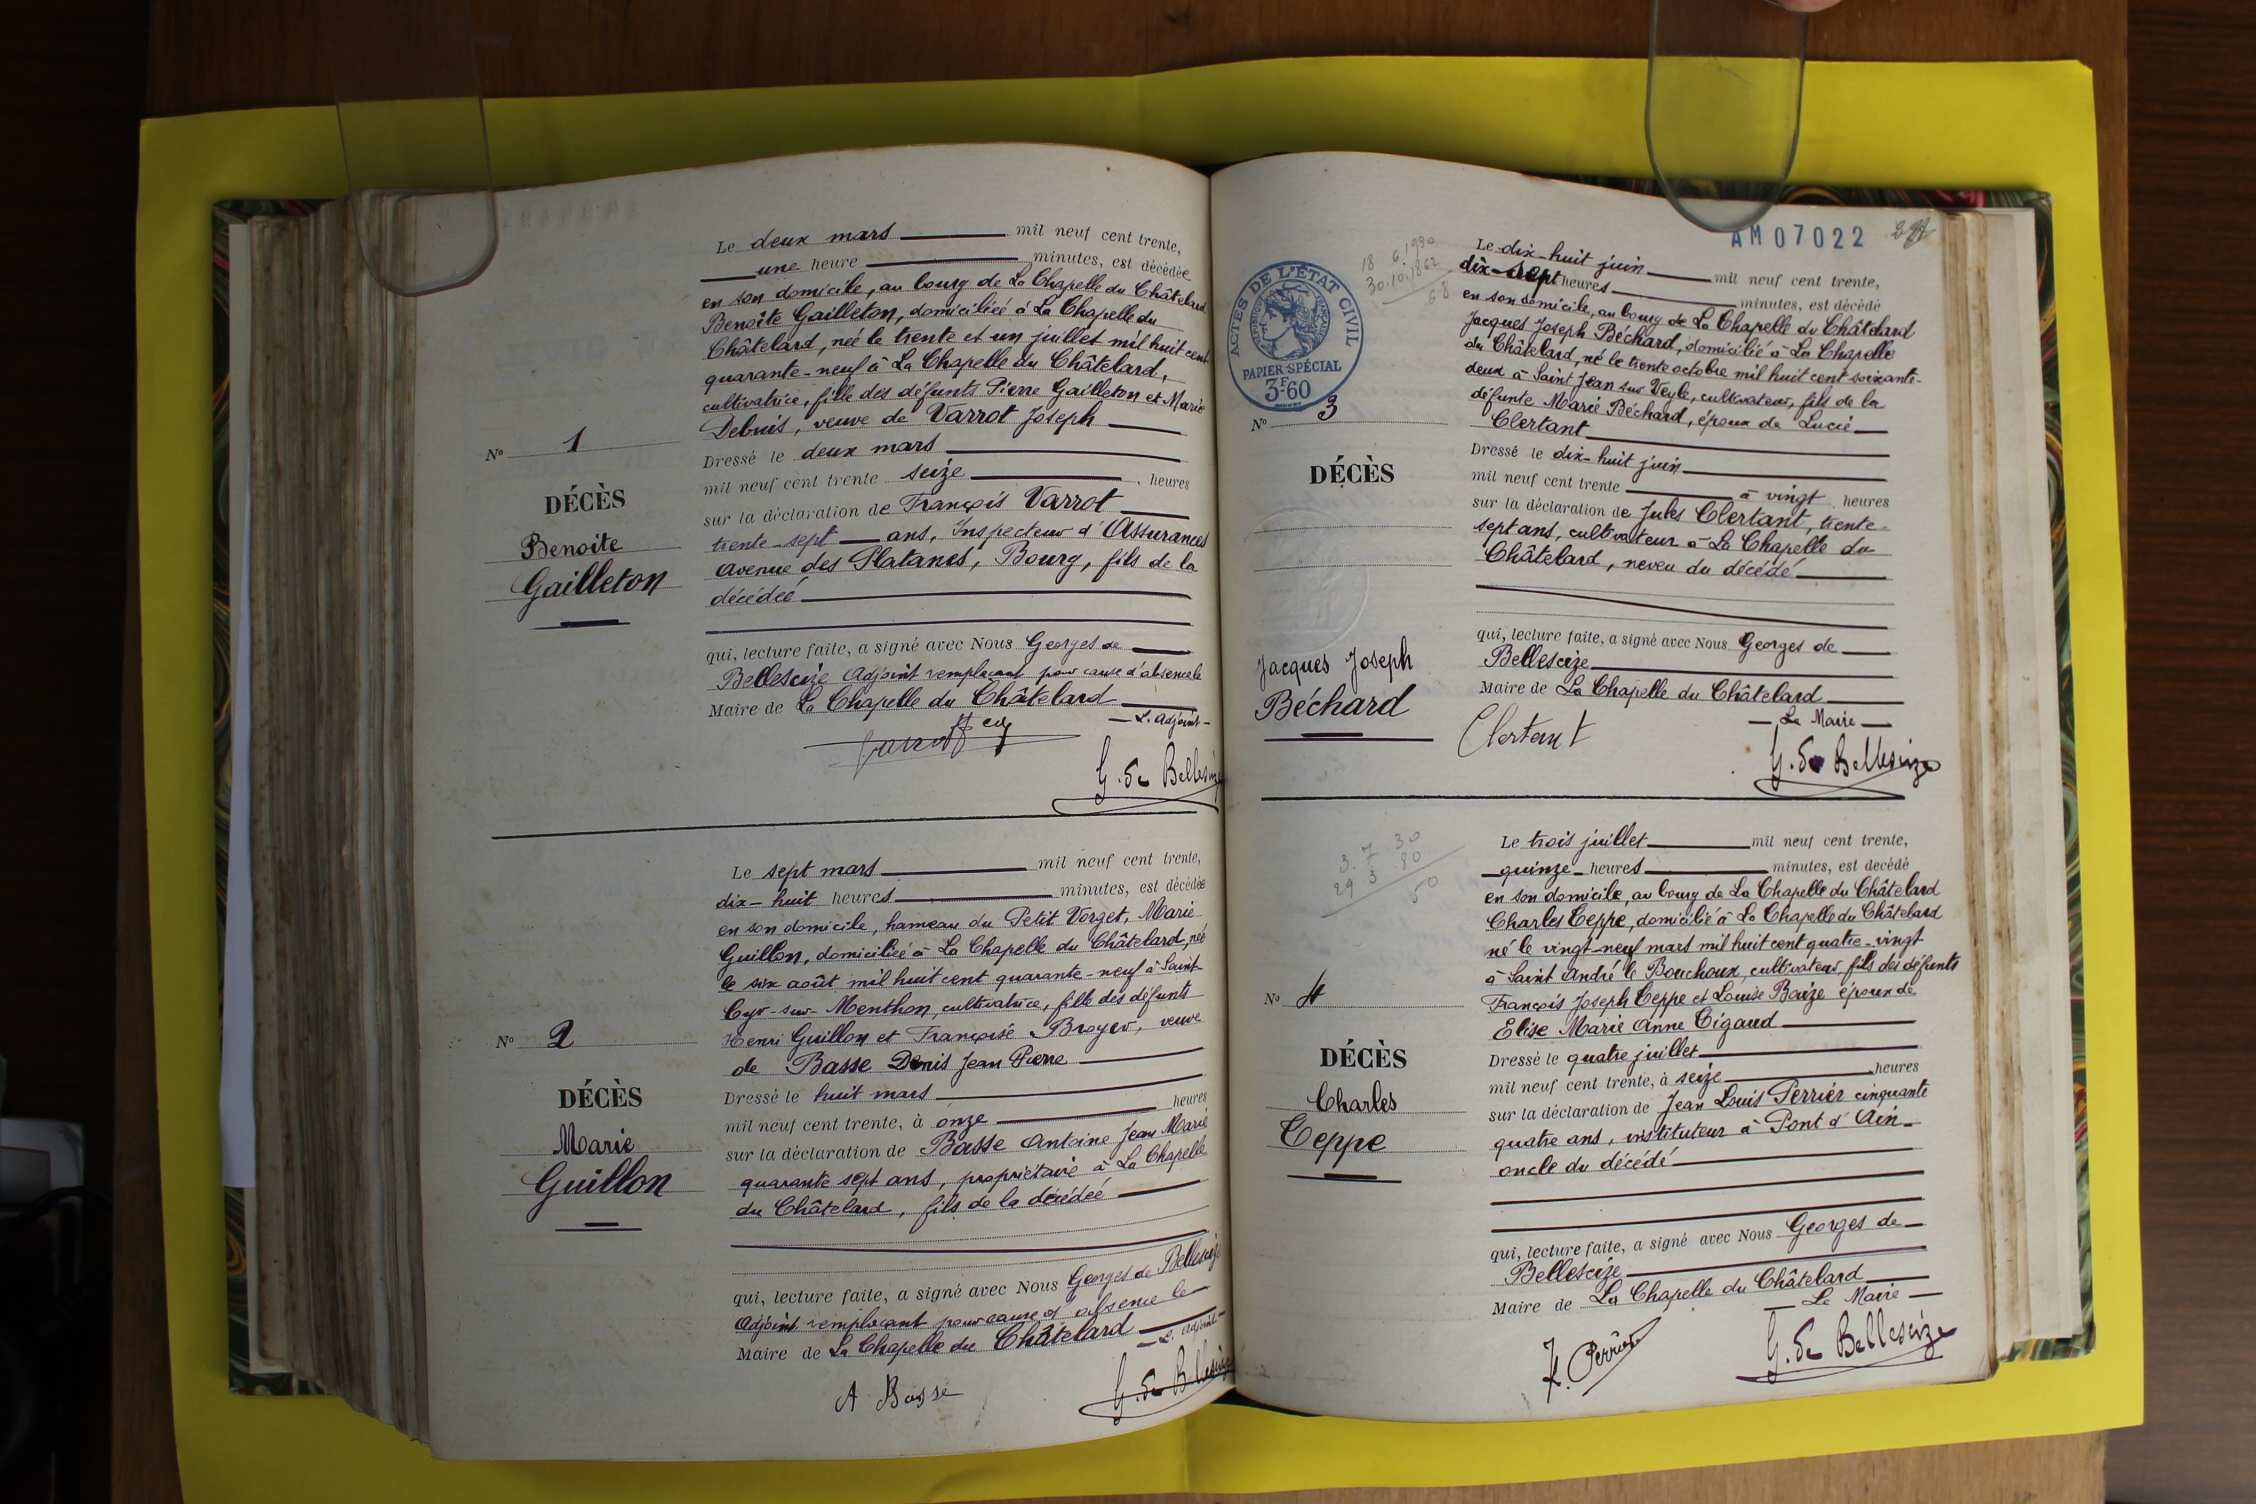 Le deux mars mil neuf cent trente,
une heure minutes, est décédée
en son domicile, au bourg de La Chapelle du Châtelard
Benoîte Gailleton, domiciliée à La Chapelle du
Châtelard, née le trente et un juillet mil huit cent
quarante-neuf à La Chapelle du Châtelard,
cultivatrice, fille des défunts Pierre Gailleton et Marie
Debuis, veuve de Varrot Joseph
Dressé le deux mars
mil neuf cent trente seize, heures
sur la déclaration de François Varrot
trente-sept ans, Inspecteur d'Assurances
Avenue des Platanes, Bourg, fils de la
décédée
qui, lecture faite, a signé avec Nous Georges de
Bellescize Adjoint remplaçant pour cause d'absence le
Maire de La Chapelle du Châtelard
L'Adjoint
G. de Bellescize
N° 1
DÉCÈS
Benoite
Gailleton
Le sept mars mil neuf cent trente,
dix-huit heures minutes, est décédée
en son domicile, hameau du Petit Vorget, Marie
Guillon, domiciliée à La Chapelle du Châtelard, née
le six août mil huit cent quarante-neuf à Saint-
Cyr-sur-Menthon, cultivatrice, fille des défunts
Henri Guillon et Françoise Broyer, veuve
de Basse Denis Jean Pierre
Dressé le huit mars
mil neuf cent trente, à onze heures
sur la déclaration de Basse Antoine Jean Marie
quarante sept ans, propriétaire à La Chapelle
du Châtelard, fils de la décédée
qui, lecture faite, a signé avec Nous Georges de Bellescize
Adjoint remplaçant pour cause d'absence le
Maire de La Chapelle du Châtelard
L'Adjoint
A Basse
G. de Bellescize
N° 2
DÉCÈS
Marie
Guillon
AM07022
18 6.1930
30.10.1862
68
ACTES DE L'ÉTAT CIVIL
PAPIER SPÉCIAL
3F60
Le dix-huit juin mil neuf cent trente,
dix-sept heures minutes, est décédé
en son domicile, au bourg de La Chapelle du Châtelard
Jacques Joseph Béchard, domicilié à La Chapelle
du Châtelard, né le trente octobre mil huit cent soixante-
deux à Saint Jean sur Veyle, cultivateur, fils de la
défunte Marie Béchard, époux de Lucie
Clertant
Dressé le dix-huit juin
mil neuf cent trente à vingt heures
sur la déclaration de Jules Clertant, trente-
sept ans, cultivateur à La Chapelle du
Châtelard, neveu du décédé
qui, lecture faite, a signé avec Nous Georges de
Bellescize
Maire de La Chapelle du Châtelard
Le Maire
Clertant
G. de Bellescize
N° 3
DÉCÈS
Jacques Joseph
Béchard
3. 7 30
29 3 80
50
Le trois juillet mil neuf cent trente,
quinze heures minutes, est decédé
en son domicile, au bourg de La Chapelle du Châtelard
Charles Teppe, domicilié à La Chapelle du Châtelard
né le vingt-neuf mars mil huit cent quatre-vingt
à Saint André le Bouchoux, cultivateur, fils des défunts
François Joseph Teppe et Louise Boize époux de
Elise Marie Anne Tigaud
Dressé le quatre juillet
mil neuf cent trente, à seize heures
sur la déclaration de Jean Louis Perrier cinquante
quatre ans, instituteur à Pont d'Ain
oncle du décédé
qui, lecture faite, a signé avec Nous Georges de
Bellescize
Maire de La Chapelle du Châtelard
Le Maire
G. de Bellescize
N° 4
DÉCÈS
Charles
Teppe